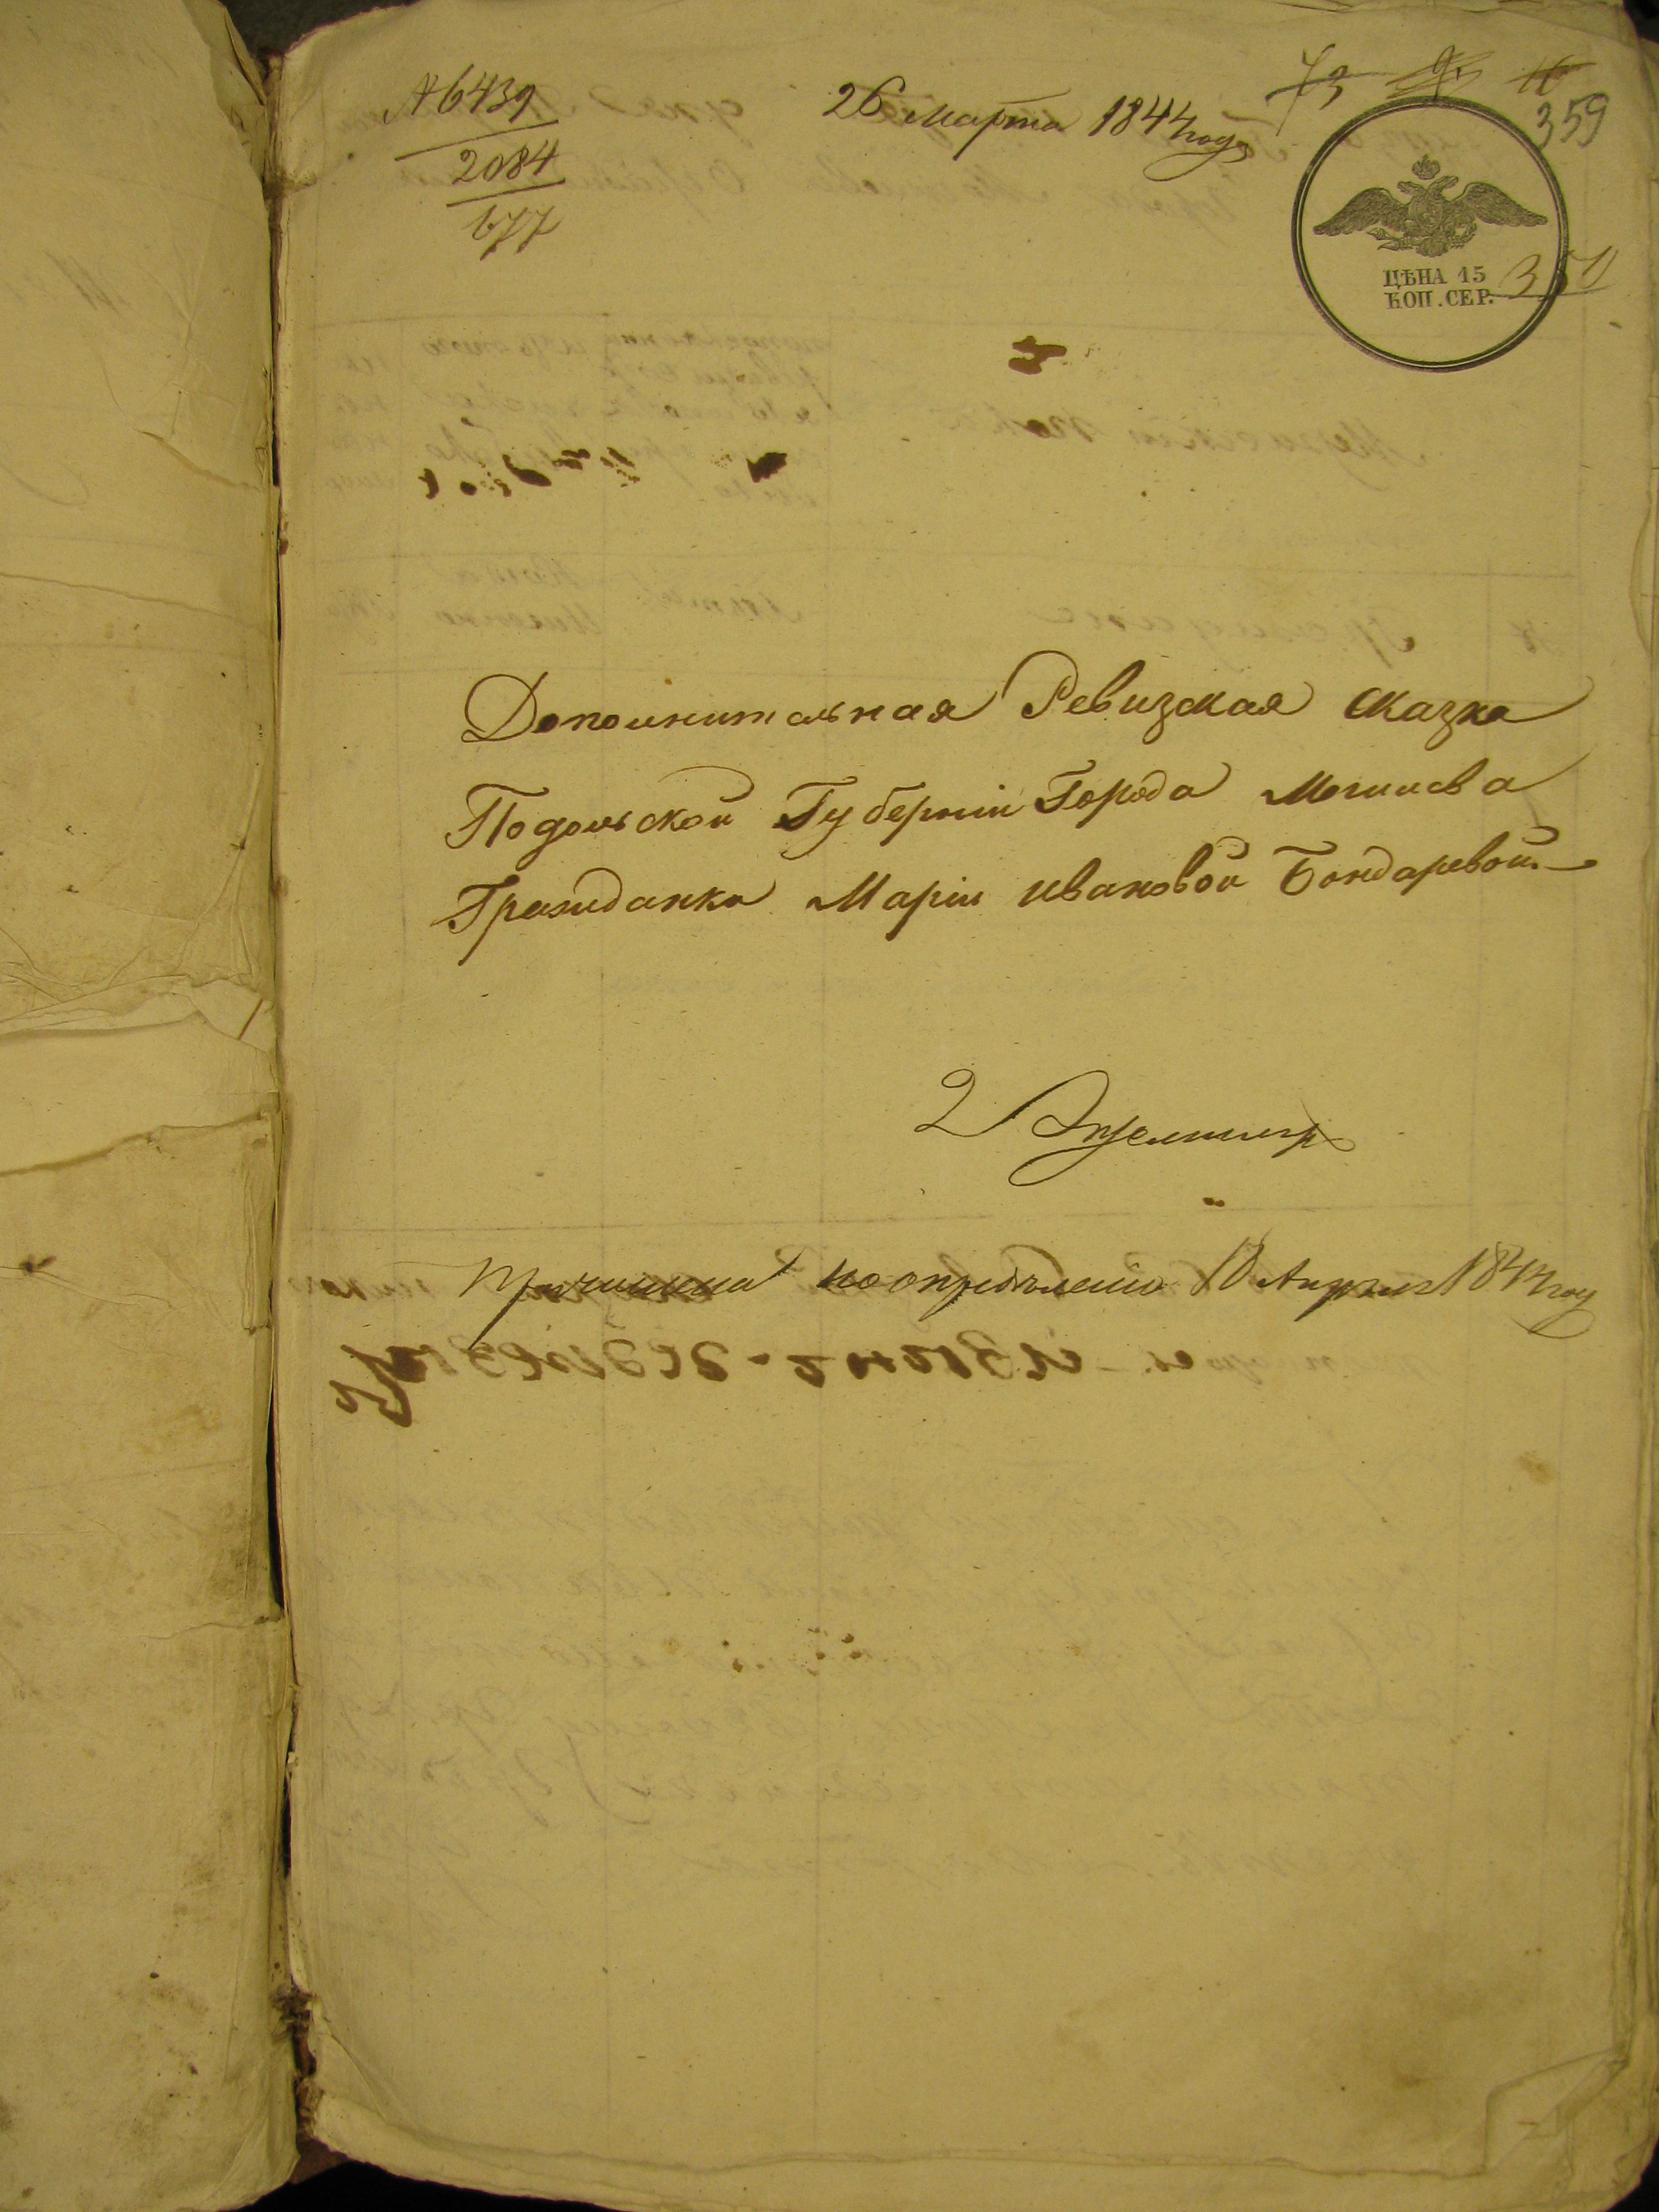 № 6439
2084
677
26 Марта 1844 года
359
ЦѢНА 15
КОП. СЕР.
350
Дополнительная Ревизская сказка
Подольской Губерніи Города Могилева
Гражданки Маріи Ивановой Бондаревой
2
по опредѣленію 10 Апрѣля 1844 году